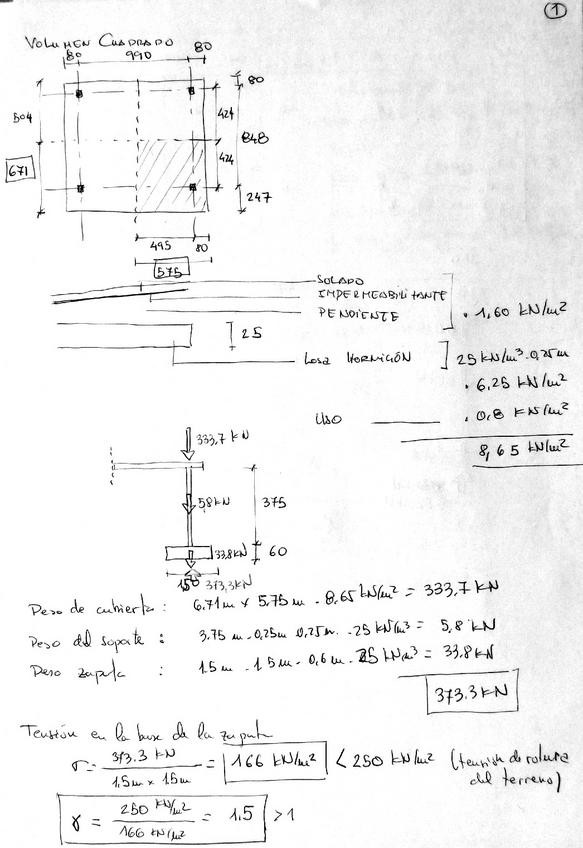 1
VOLUMEN CUADRADO
80 990 80
80
504
424
848
671
424
247
495 80
575
SOLADO
IMPERMEABILITANTE
PENDIENTE
. 1,60 KN/m²
25
LOSA HORMIGÓN
25 KN/m³ . 0,25m
. 6,25 KN/m²
USO
. 0,8 KN/m²
8,65 KN/m²
333,7 KN
5,8KN
375
33,8KN
60
150
373,3KN
Peso de cubierta : 6,71m x 5,75m . 8,65 KN/m² = 333,7 KN
Peso del soporte : 3,75 m . 0,25m 0,25m . 25 KN/m³ = 5,8 KN
Peso zapata : 1.5m . 1.5m . 0,6m . 25 KN/m³ = 33,8 KN
373.3 KN
Tensión en la base de la zapata
σ = 373.3 KN / 1,5m x 1.5m = 166 KN/m² < 250 KN/m² (tensión de rotura
del terreno)
γ = 250 KN/m² / 166 KN/m² = 1.5 > 1